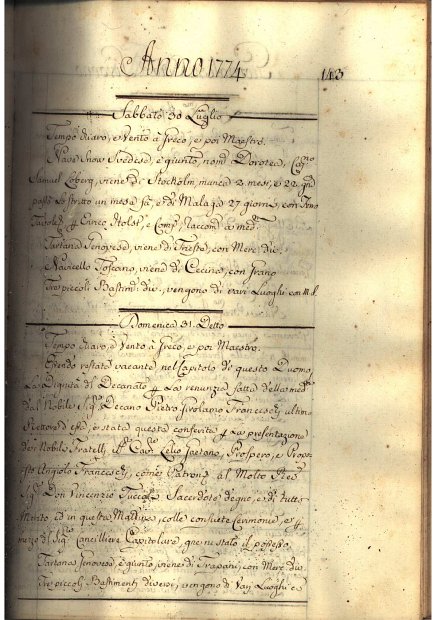 ANNO 1774
143
Sabbato 30 Luglio
Tempo chiaro, e Vento à Greco, e poi Maestro.
Nave Snow Svedese, è giunto, nom. Dorotea, Cap.no
Samuel Loberg, viene di Stockholm, manca 2 mesi, e 22 gni
passò lo stretto un mesa fà, e di Malaga 27 giorni, con
Enrico Stolt, e Comp.
Tartana Genovese, viene di Trieste, con Merc. div.
Navicello Toscano, viene di Cecina, con Grano
Tre piccoli Bastim. div., vengono di vari Luoghi con M. d.
Domenica 31. Detto
Tempo chiaro, e Vento à Greco, e poi Maestro.
Essendo restato vacante, nel Capitolo di questo Duomo,
La Dignità di Decanato la renunzia fatta della med.
dal Nobile Sig. Decano Pietro Girolamo Franceschi ultimo
Rettore d' essa, è stata questa conferita la presentazione
de Nobili Fratelli, Lelio Gaetano, Prospero, e
Angiolo Franceschi, come Patroni al Molto
Sig. Don Vincenzio Sacerdote degno, e di tutto
Merito, ed in questa Mattina, colle consuete Cerimonie, e
mezzo di Sig. Cancelliere Capitolare, gne fu stato il possesso.
Tartana Genovese, è giunto, viene di Trapani, con Merc. div.
Tre piccoli Bastimenti diversi, vengono di Varj Luoghi e